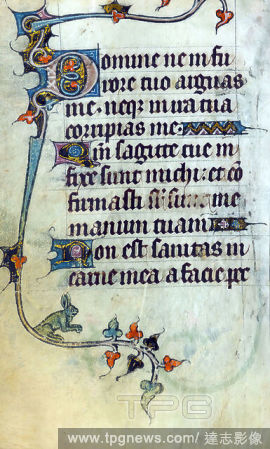 Domine ne in fu
rore tuo arguas
me. neq; in ira tua
corripias me.
Qm sagitte tue in
fixe sunt michi: et cō
firmasti sr̄ sup me
manum tuam
Non est sanitas in
carne mea a facie pec
TPG
www.tpgnews.com/達志影像